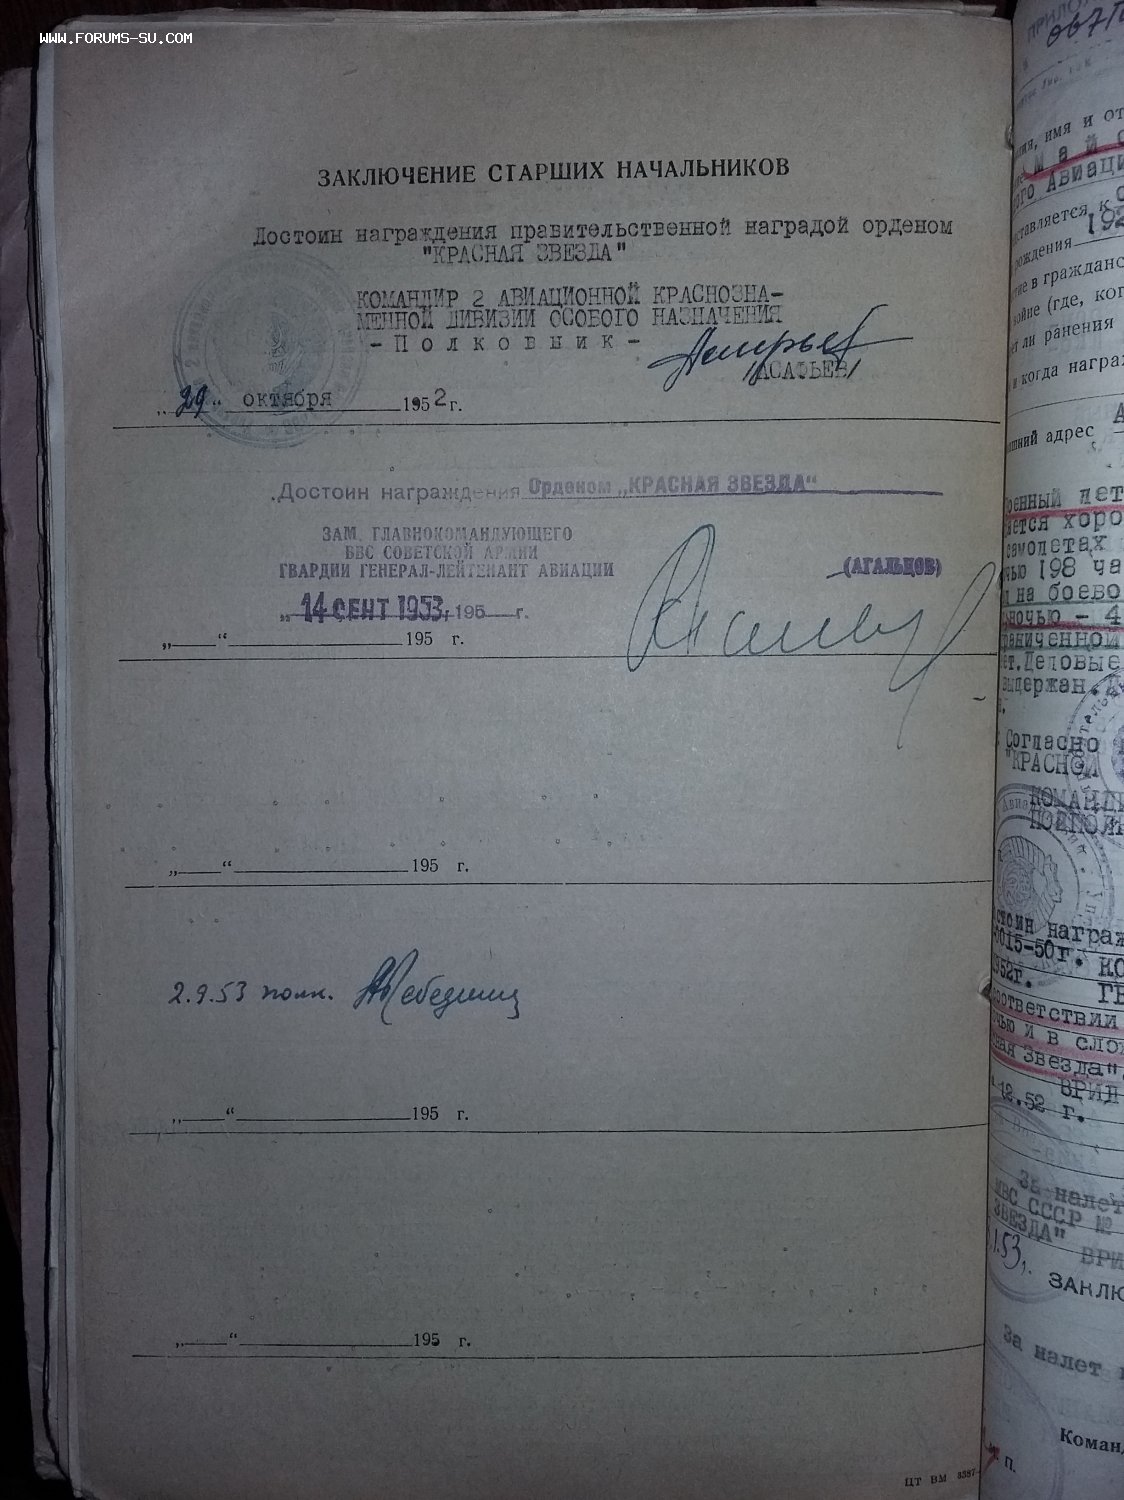 www.forums-su.com
ЗАКЛЮЧЕНИЕ СТАРШИХ НАЧАЛЬНИКОВ
Достоин награждения правительственной наградой орденом
"КРАСНАЯ ЗВЕЗДА"
КОМАНДИР 2 АВИАЦИОННОЙ КРАСНОЗНА-
МЕННОЙ ДИВИЗИИ ОСОБОГО НАЗНАЧЕНИЯ
- Полковник -
/АСАФЬЕВ/
„29“ октября 1952 г.
Достоин награждения Орденом „КРАСНАЯ ЗВЕЗДА“
ЗАМ. ГЛАВНОКОМАНДУЮЩЕГО
ВВС СОВЕТСКОЙ АРМИИ
ГВАРДИИ ГЕНЕРАЛ-ЛЕЙТЕНАНТ АВИАЦИИ
(АГАЛЬЦОВ)
„14 СЕНТ 1953, 195 г.
„ “ 195 г.
„ “ 195 г.
2.9.53 полк. Лебединец
„ “ 195 г.
„ “ 195 г.
ЦТ ВМ 8387
имя и от
Авиаци
ставляется к
рождения 192
ие в гражданс
войне (где, ког
ет ли ранения
и когда награж
шний адрес
военный лет
яется хоро
самолетах
чью 198 ча
на боево
ночью - 4
раниченной
ет. Деловые
выдержан.
Согласно
"КРАСНОЙ
КОМАНДИ
ПОДПОЛК
стоин награж
0015-50г. КО
1952г. ГВ
соответствии
чью и в слож
ная Звезда"
ВРИД
12.52 г.
За налет
МВС СССР №
ЗВЕЗДА"
ВРИ
1.53г.
ЗАКЛЮ
За налет
Команд
М. П.